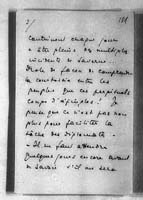 2/ 181
continuent chaque jour
à être pleins des multiples
incidents de Saverne...
Drôle de façon de comprendre
la concorde entre les
peuples que ces perpétuels
coups d'épingles ! Je
pense que ce n'est pas non
plus pour faciliter la
tâche des diplomates.
- Il me faut attendre
quelques jours encore avant
de savoir s'il me sera